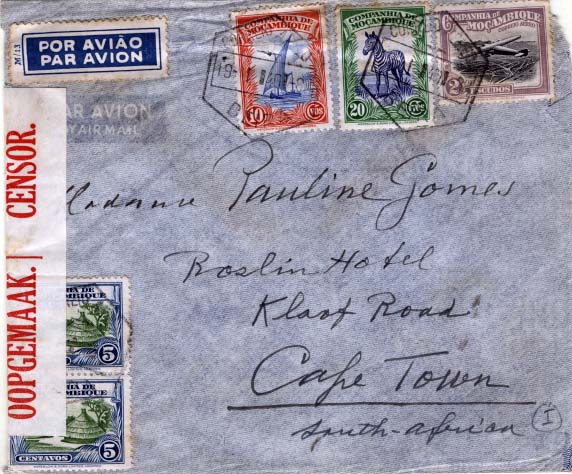 POR AVIÃO
PAR AVION
M/13
PAR AVION
BY AIR MAIL
COMPANHIA DE
MOÇAMBIQUE
10
CVOS
COMPANHIA DE
MOÇAMBIQUE
20
CVOS
COMPANHIA DE
MOÇAMBIQUE
CORREIO AEREO
2
ESCUDOS
OOPGEMAAK. | CENSOR.
Madame Pauline Gomes
Roslin Hotel
Kloof Road
Cape Town
South-Africa
I
IA DE
MBIQUE
5
IA DE
MBIQUE
CENTAVOS
5